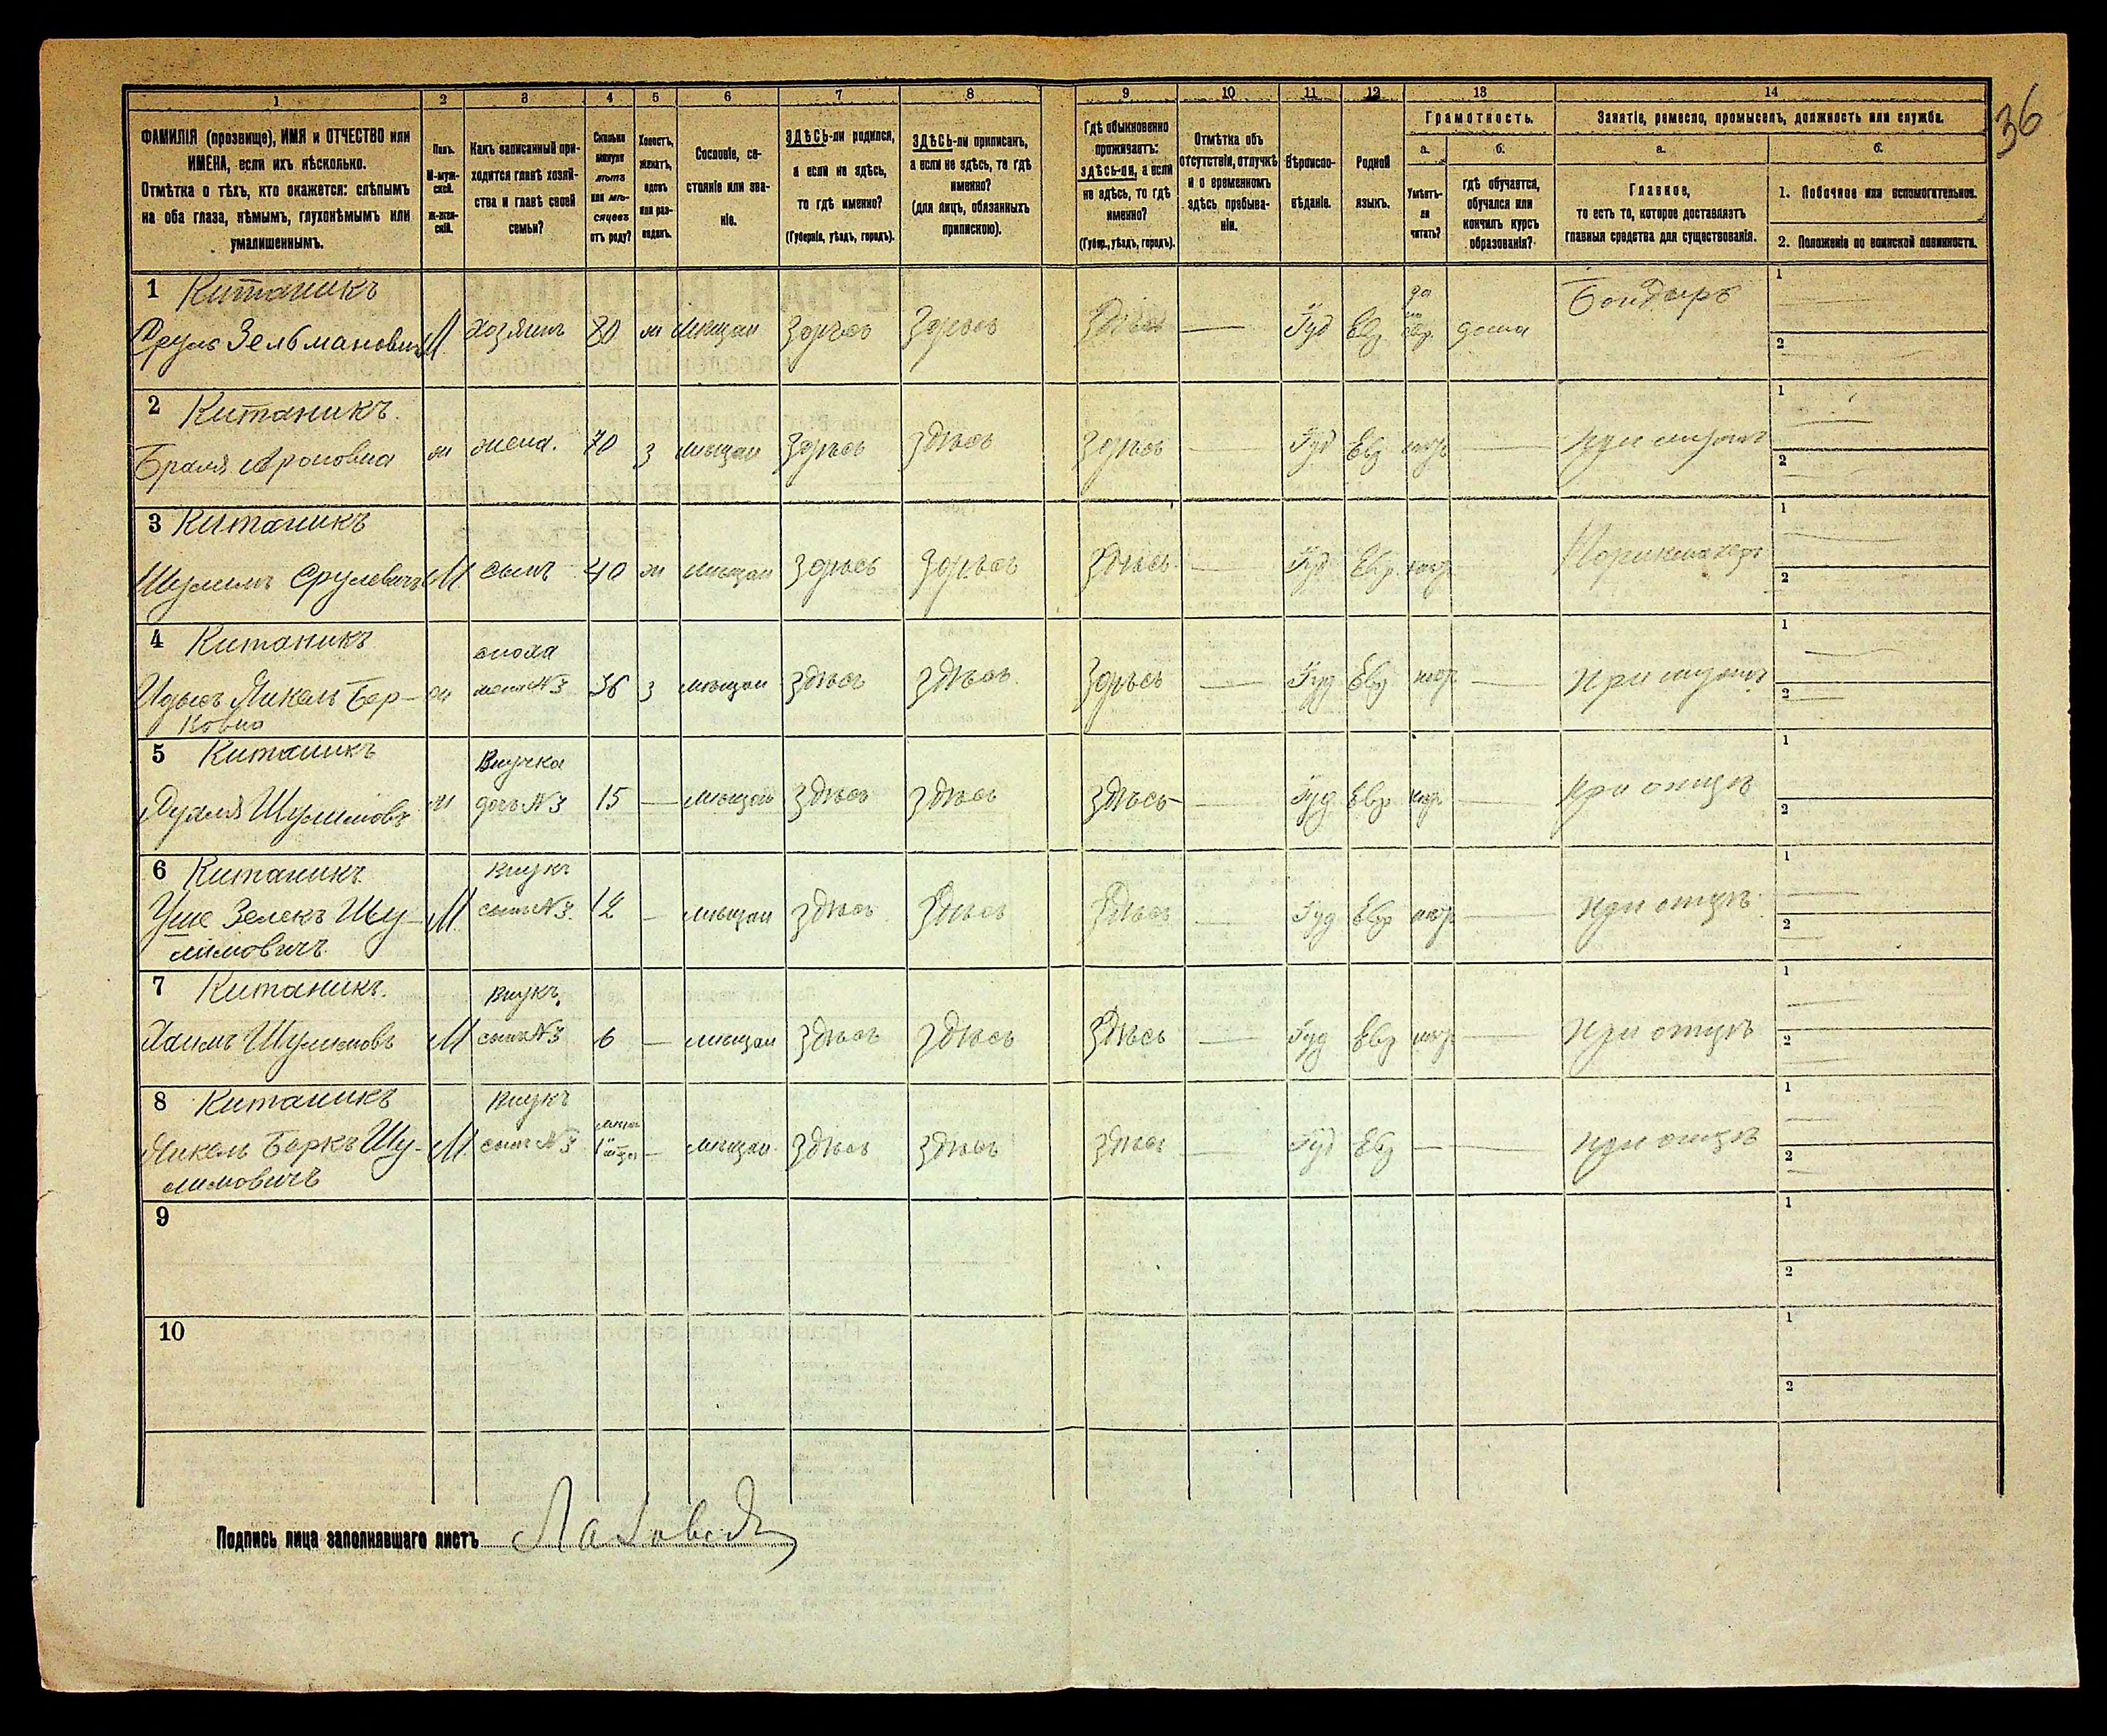 36
1 2 3 4 5 6 7 8 9 10 11 12 13 14
ФАМИЛІЯ (прозвище), ИМЯ и ОТЧЕСТВО или
ИМЕНА, если ихъ нѣсколько.
Отмѣтка о тѣхъ, кто окажется: слѣпымъ
на оба глаза, нѣмымъ, глухонѣмымъ или
умалишеннымъ.
Полъ.
М-муж-
ской.
Ж-жен-
скій.
Какъ записанный при-
ходится главѣ хозяй-
ства и главѣ своей
семьи?
Сколько
минуло
лѣтъ
или мѣ-
сяцевъ
отъ роду?
Холостъ,
женатъ,
вдовъ
или раз-
веденъ.
Сословіе, со-
стояніе или зва-
ніе.
ЗДѢСЬ-ли родился,
а если не здѣсь,
то гдѣ именно?
(Губернія, уѣздъ, городъ).
ЗДѢСЬ-ли приписанъ,
а если не здѣсь, то гдѣ
именно?
(для лицъ, обязанныхъ
припискою).
Гдѣ обыкновенно
проживаетъ:
здѣсь-ли, а если
не здѣсь, то гдѣ
именно?
(Губер., уѣздъ, городъ).
Отмѣтка объ
отсутствіи, отлучкѣ
и о временномъ
здѣсь пребыва-
ніи.
Вѣроиспо-
вѣданіе.
Родной
языкъ.
Грамотность.
а.
Умѣетъ-
ли
читать?
б.
гдѣ обучается,
обучался или
кончилъ курсъ
образованія?
Занятіе, ремесло, промыселъ, должность или служба.
а.
Главное,
то есть то, которое доставляетъ
главныя средства для существованія.
б.
1. Побочное или вспомогательное.
2. Положеніе по воинской повинности.
1 Китаникъ
Сруль Зельмановичъ М хозяинъ 80 ж мѣщан здѣсь здѣсь здѣсь — Іуд Евр да евр. дома Бондарь 1 2
2 Китаникъ.
Ароновна ж жена. 70 з мѣщан здѣсь здѣсь здѣсь — Іуд Евр негр — при мужѣ 1 2
3 Китаникъ
Шулимъ Срулевичъ М сынъ 40 ж мѣщан здѣсь здѣсь здѣсь — Іуд Евр негр Парикмахеръ 1 2
4 Китаникъ сноха
Бер- ж жена №3 36 з мѣщан здѣсь здѣсь здѣсь — Іуд Евр негр — при мужѣ 1 2
ковна
5 Китаникъ Внучка
Шулимовъ ж дочь №3 15 — мѣщан здѣсь здѣсь здѣсь — Іуд Евр негр — при отцѣ 1 2
6 Китаникъ внукъ
Зелекъ Шу- М сынъ №3. 12 — мѣщан здѣсь здѣсь здѣсь — Іуд Евр негр — при отцѣ 1 2
лимовичъ
7 Китаникъ. внукъ.
Хаимъ Шулимовъ М сынъ №3 6 — мѣщан здѣсь здѣсь здѣсь — Іуд Евр негр — при отцѣ 1 2
8 Китаникъ Внукъ
Беркъ Шу- М. сынъ №3 1 — мѣщан здѣсь здѣсь здѣсь — Іуд Евр — — при отцѣ 1 2
лимовичъ
9 1 2
10 1 2
Подпись лица заполнявшаго листъ